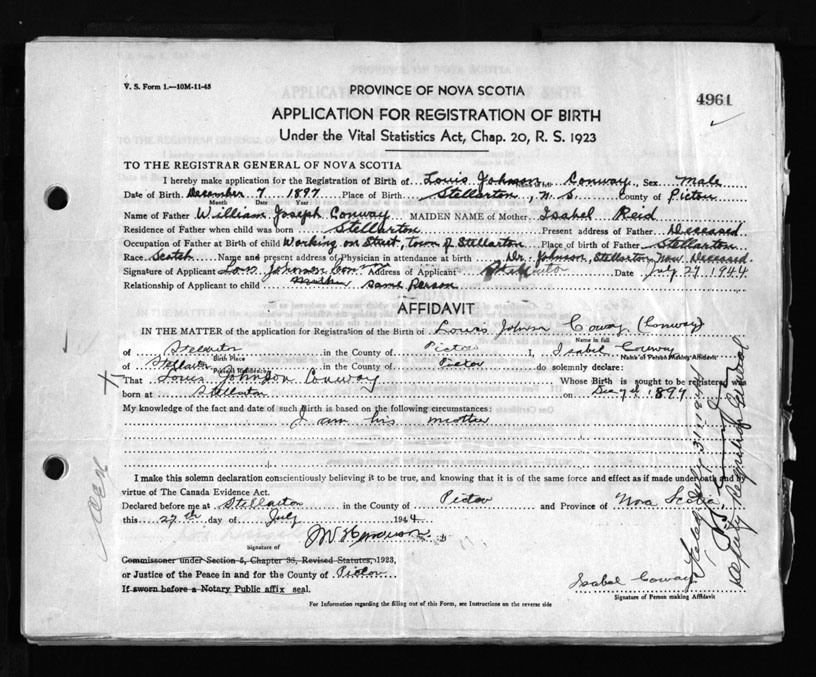 V. S. Form 1.—10M-11-43
PROVINCE OF NOVA SCOTIA
4961
APPLICATION FOR REGISTRATION OF BIRTH
Under the Vital Statistics Act, Chap. 20, R. S. 1923
TO THE REGISTRAR GENERAL OF NOVA SCOTIA
I hereby make application for the Registration of Birth of Louis Johnson Conway, Sex Male
Date of Birth December 7 1897 Place of Birth Stellarton, N. S. County of Pictou
Month Date Year
Name of Father William Joseph Conway MAIDEN NAME of Mother Isabel Reid
Residence of Father when child was born Stellarton Present address of Father Deseased
Occupation of Father at Birth of child Working on Street, Town of Stellarton Place of birth of Father Stellarton
Race Scotch Name and present address of Physician in attendance at birth Dr. Johnson, Stellarton Now Deseased.
Signature of Applicant Louis Johnson Conway Address of Applicant Date July 27 1944
Relationship of Applicant to child same Person
AFFIDAVIT
IN THE MATTER of the application for Registration of the Birth of Louis Johnson Coway (Conway)
Name in full
of Stellarton in the County of Pictou I, Isabel Conway
Birth Place Name of Person Making Affidavit
of Stellarton in the County of Pictou do solemnly declare:
Present Residence
That Louis Johnson Conway Whose Birth is sought to be registered was
born at Stellarton on Dec 7th 1897
My knowledge of the fact and date of such Birth is based on the following circumstances:
I am his mother
I make this solemn declaration conscientiously believing it to be true, and knowing that it is of the same force and effect as if made under oath and by
virtue of The Canada Evidence Act.
Declared before me at Stellarton in the County of Pictou and Province of Nova Scotia
this 27th day of July 1944
Signature of
Commissioner under Section 5, Chapter 38, Revised Statutes, 1923,
or Justice of the Peace in and for the County of Pictou
If sworn before a Notary Public affix seal.
Isabel Coway
Signature of Person making Affidavit
For Information regarding the filling out of this Form, see Instructions on the reverse side
Deputy Registrar General